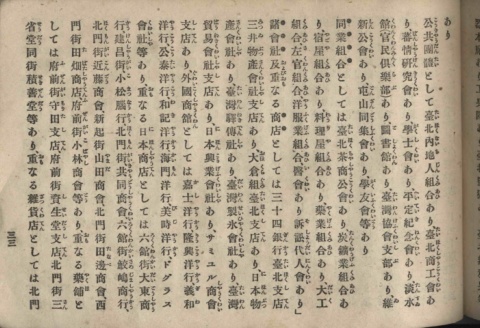 あり
公共團體として臺北內地人組合あり臺北商工會あ
り蕃情硏究會あり學士會あり平定紀念會あり淡水
館官民俱樂部あり圖書館あり臺灣協會支部あり維
新公會あり屯山同集會あり學友會等あり
同業組合としては臺北茶商公會あり炭鑛業組合あ
り宿屋組合あり料理屋組合あり藥業組合あり大工
組合左官組合洋服業組合醫會あり訴訟代人會あり」
諸會社及重なる商店としては三十四銀行臺北支店あり
三井物產會社支店あり大倉組臺北支店あり日本物
產會社あり臺灣驛傳社あり臺灣製氷會社あり臺灣
貿易會社支店あり日本興業會社ありサミエル商會
支店あり外國商館としては嘉士洋行隆興洋行義和
洋行公泰洋行和記洋行海門洋行美時洋行ドグラス
會社等あり重なる日本商店としては六館街大東商
行建昌街小松組行北門街共同商會六館街鼓崎商行
北門街近藤商會新起街山田商會北門街田邊商會西
門街田畑商店府前街小林商會等あり重なる藥舖と
しては府前街守田支店府前街資生堂支店北門街三
省堂同街慈善堂等あり重なる雜貨店としては北門
三三